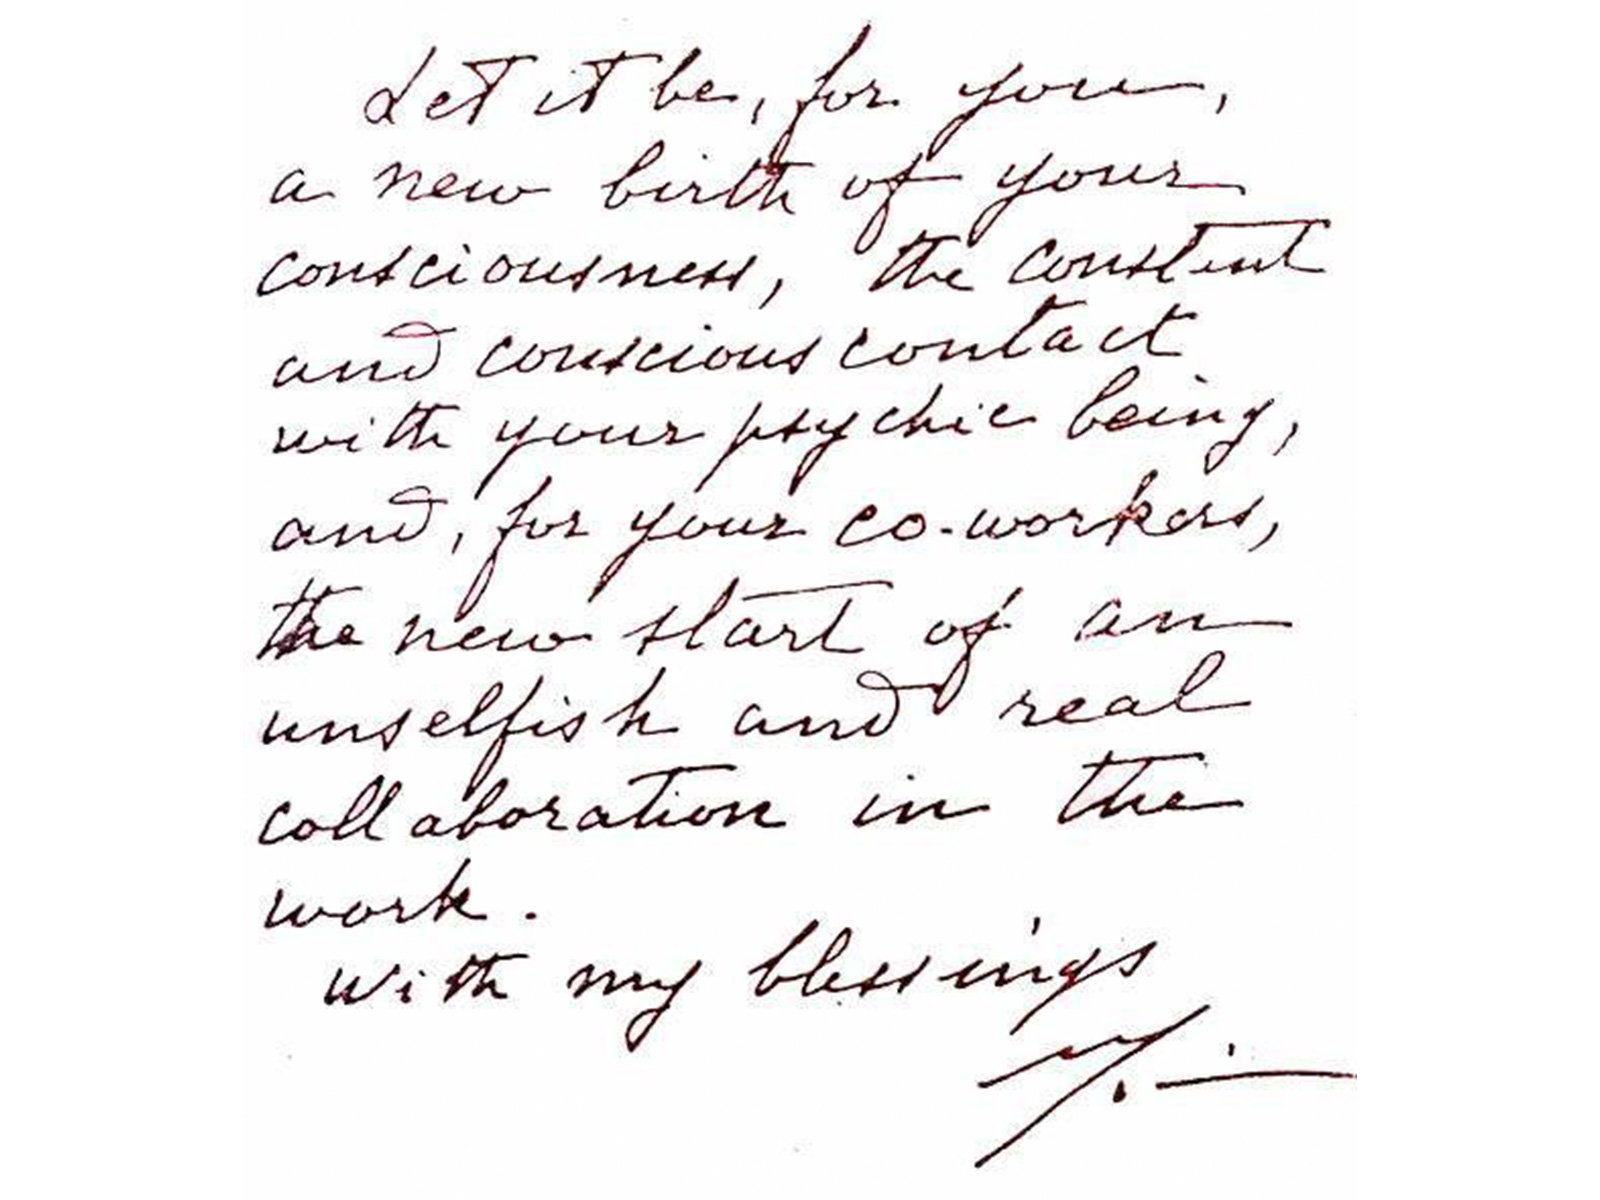 Let it be, for you,
a new birth of your
consciousness, the constent
and conscious contact
with your psychic being,
and, for your co-workers,
the new start of an
unselfish and real
collaboration in the
work.
with my blessings